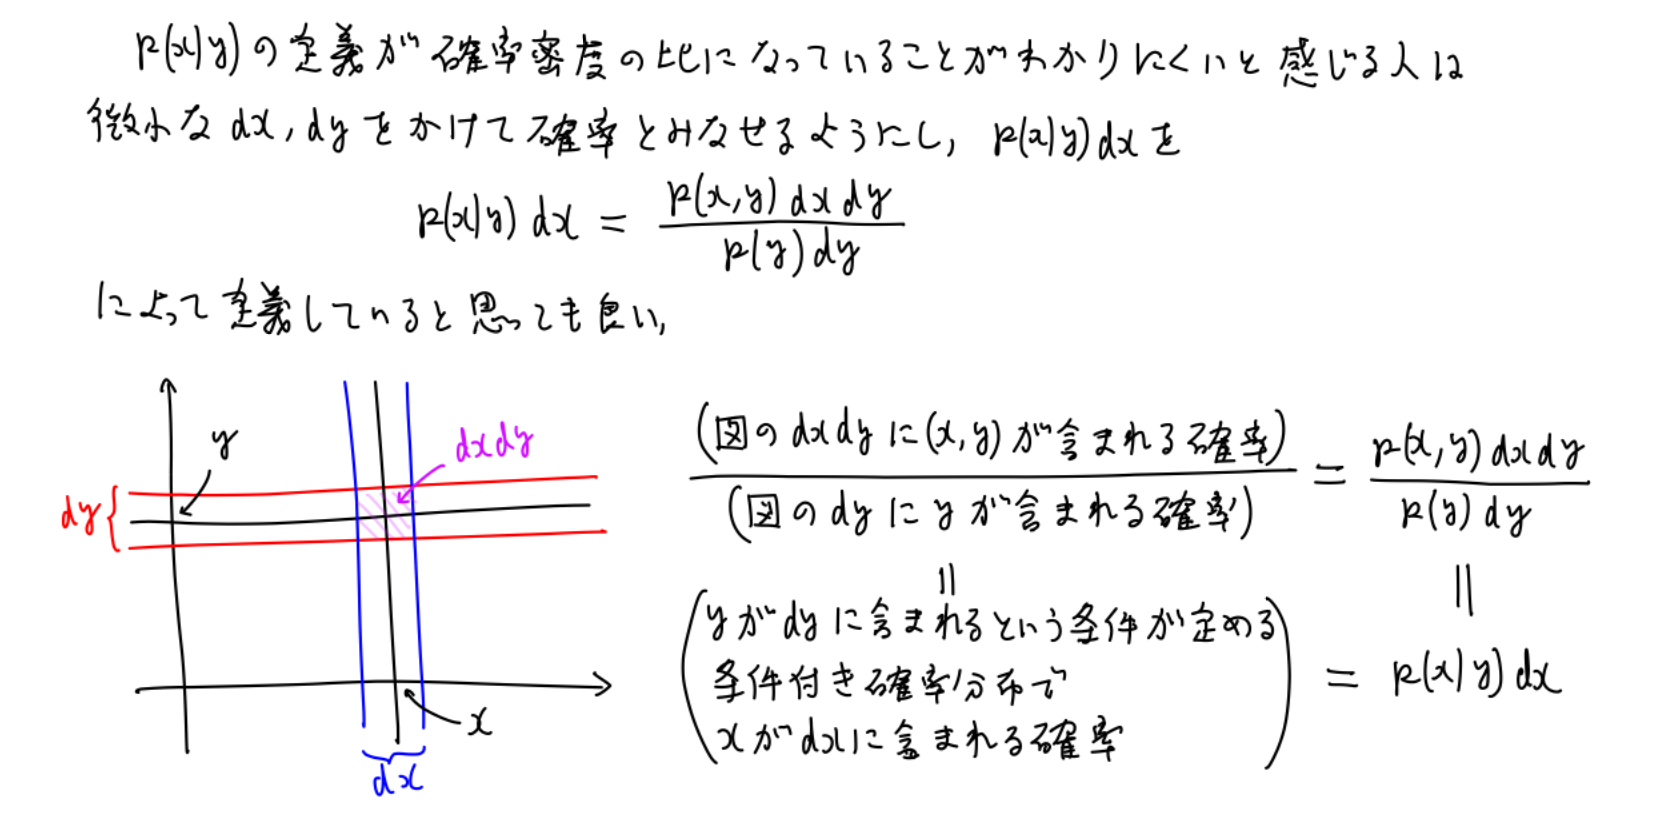 p(x|y)の定義が確率密度の比になっていることがわかりにくいと感じる人は
微小なdx, dyをかけて確率とみなせるようにし, p(x|y)dxを
p(x|y) dx = p(x,y) dx dy / p(y) dy
によって定義していると思っても良い,
y
dxdy
dy
x
dx
(図のdxdyに(x,y)が含まれる確率) / (図のdyにyが含まれる確率) = p(x,y) dx dy / p(y) dy
|| ||
(yがdyに含まれるという条件が定める
条件付き確率分布で = p(x|y) dx
xがdxに含まれる確率)